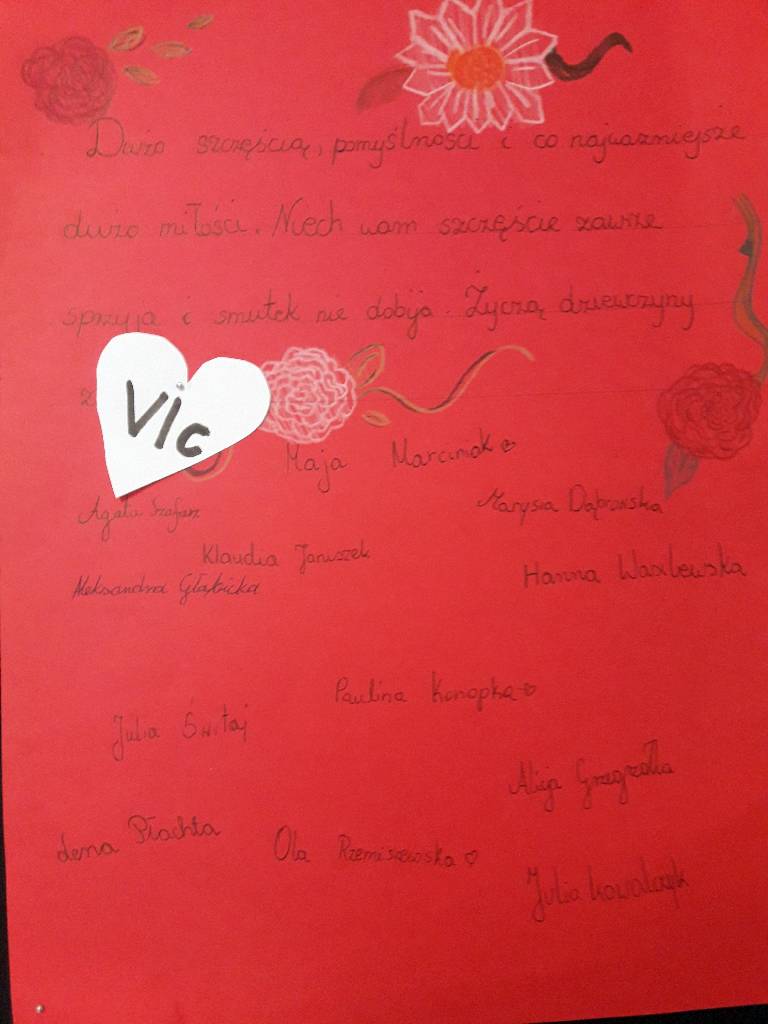 Dużo szczęścią, pomyślności i co najważniejsze
dużo miłości. Niech wam szczęście zawsze
sprzyja i smutek nie dobija. Życzą dziewczyny
z
Vic
Maja Marciniak
Agata Szafarz
Marysia Dąbrowska
Klaudia Januszek
Aleksandra Głąbicka
Hanna Wasilewska
Paulina Konopka
Julia Świtaj
Alicja Grzegrzółka
Lena Płachta
Ola Rzemiszewska
Julia Kowalczyk